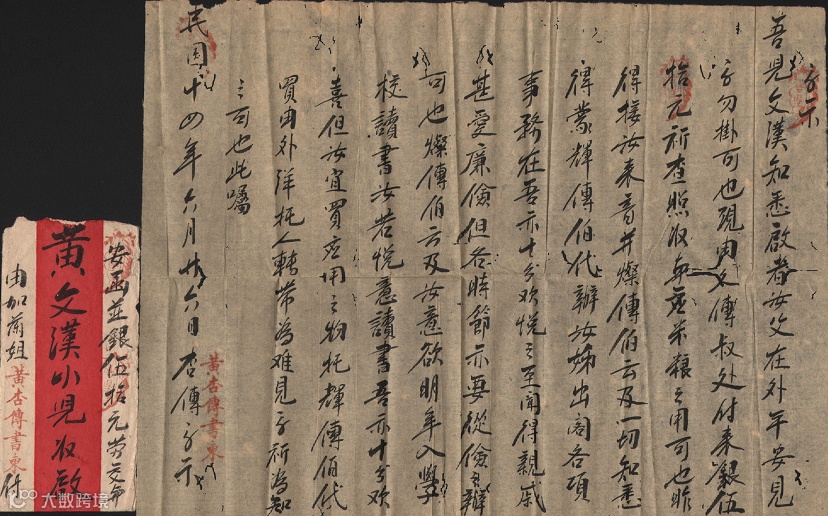 字示
吾兒文漢知悉啟者汝父在外平安見
字勿掛可也現由文傳叔处付来銀伍
拾元祈查照收車應米糧之用可也昨
得接汝来音并燦傳伯云及一切知悉
得蒙輝傳伯代辦汝姊出閣各項
事務在吾亦十分欢悦之至聞得親戚
甚愛廉儉但各時節亦要從儉辦
可也燦傳伯云及汝意欲明年入學
校讀書汝若悦意讀書吾亦十分欢
喜但汝宜買应用之物托輝傳伯代
買由外洋托人轉帶為难見字祈為知
之可也此囑
民国十四年六月廿六日杏傳字示
黃杏傳書柬
安函並銀伍拾元劳交
黃文漢小兒收啟
由加
黃杏傳書柬付
大数跨境